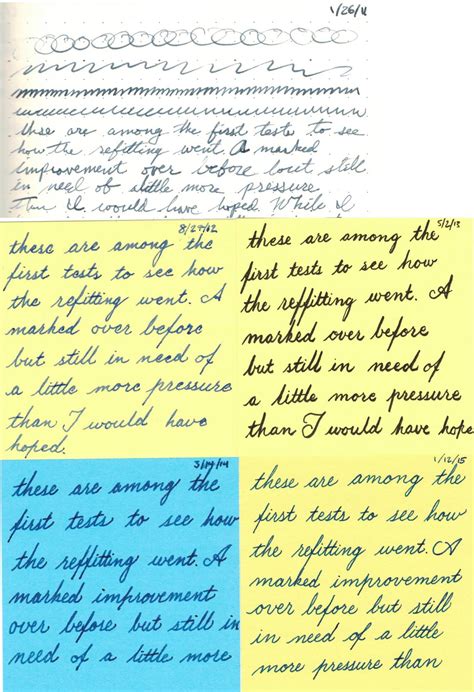 1/26/11
these are among the first tests to see
how the refitting went A marked
improvement over before but still
in need of a little more pressure
than I would have hoped. While I
8/27/12
these are among the
first tests to see how
the refitting went. A
marked over before
but still in need of
a little more pressure
than I would have
hoped.
5/2/13
these are among the
first tests to see how
the reffitting went. A
marked over before
but still in need of
a little more pressure
than I would have hope
3/14/14
these are among the
first tests to see how
the reffitting went. A
marked improvement
over before but still in
need of a little more
1/12/15
these are among the
first tests to see how
the refitting went. A
marked improvement
over before but still
in need of a little
more pressure than